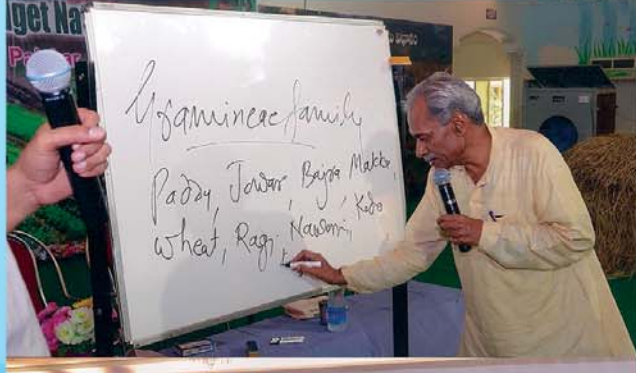 get Na
Gramineae family
Paddy, Jowar, Bajra, Makka,
wheat, Ragi, Navani, Kodo